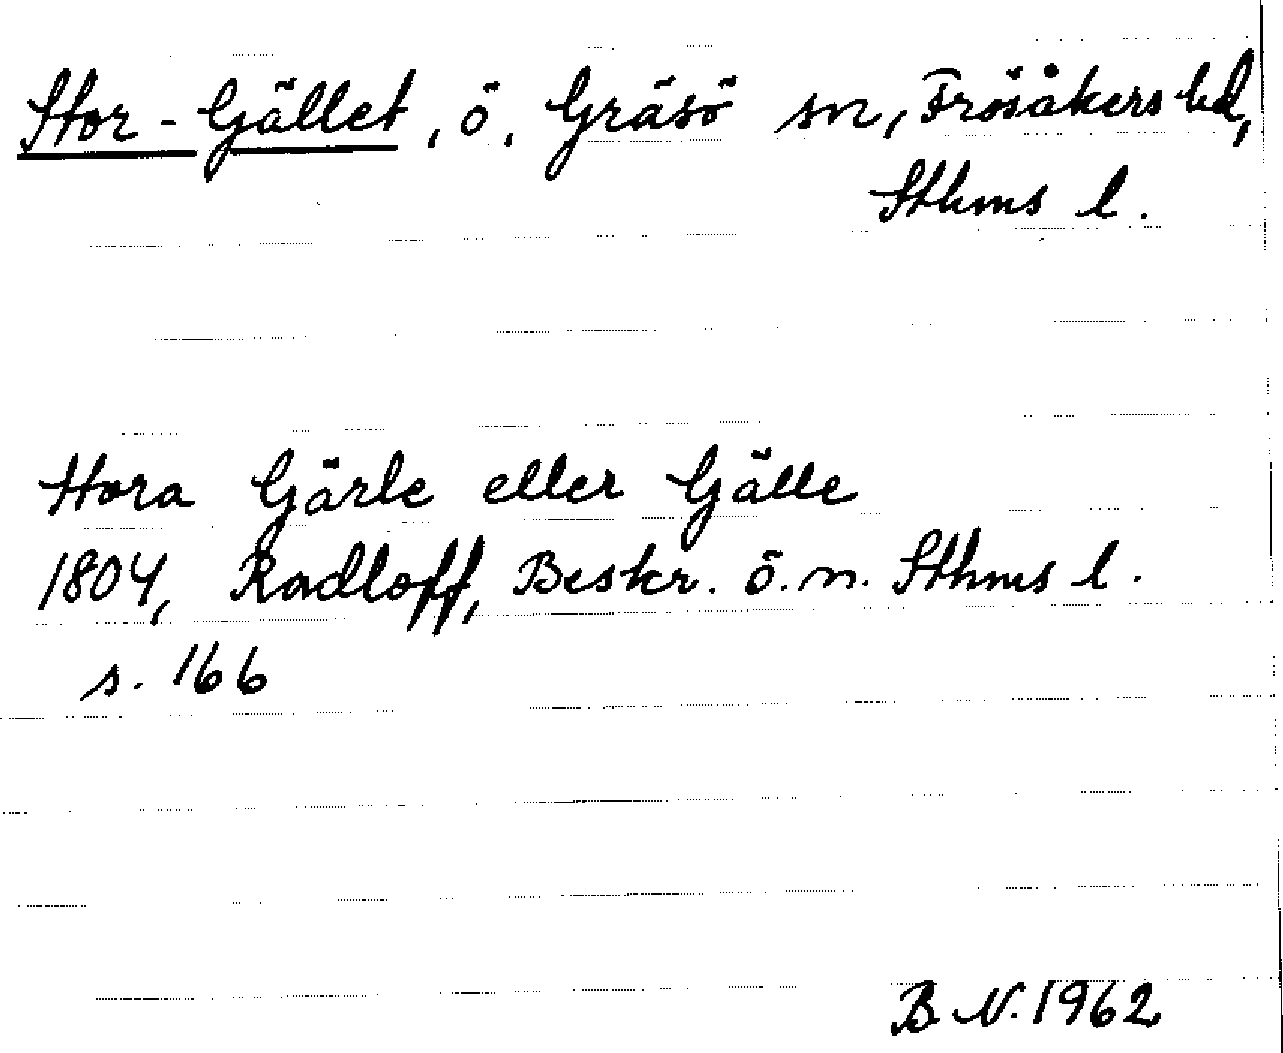 Stor-Gället, ö, Gräsö sn, Frösåkers hd,
Sthms l.
Stora Gärle eller Gälle
1804, Radloff, Beskr. ö. n. Sthms l.
s. 166
B N. 1962